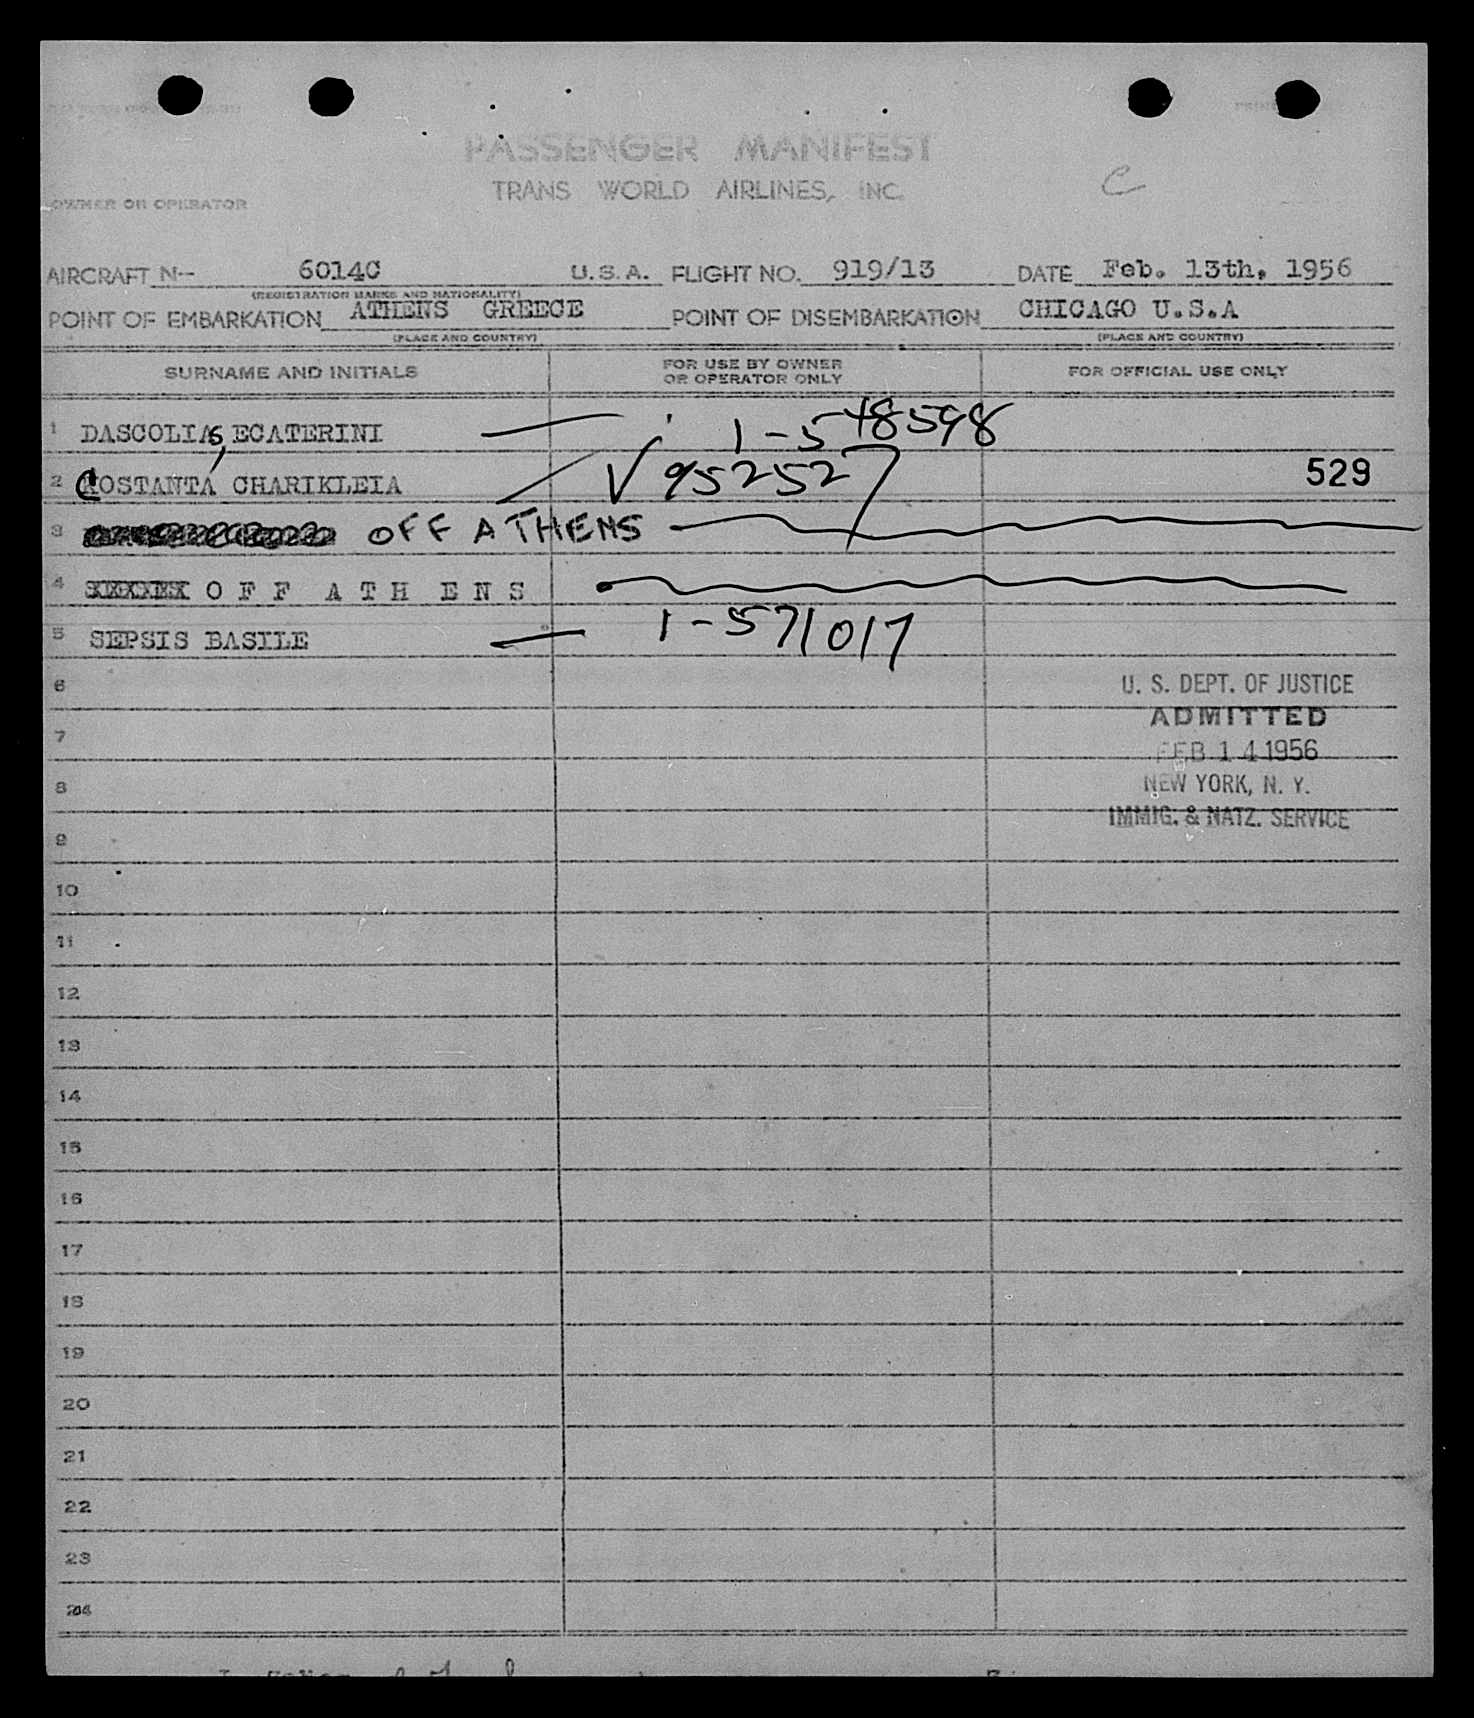 PASSENGER MANIFEST
TRANS WORLD AIRLINES, INC.
C
OWNER OR OPERATOR
AIRCRAFT N-- 6014C U.S.A. FLIGHT NO. 919/13 DATE Feb. 13th, 1956
(REGISTRATION MARKS AND NATIONALITY)
POINT OF EMBARKATION ATHENS GREECE POINT OF DISEMBARKATION CHICAGO U.S.A
(PLACE AND COUNTRY) (PLACE AND COUNTRY)
SURNAME AND INITIALS FOR USE BY OWNER OR OPERATOR ONLY FOR OFFICIAL USE ONLY
1 DASCOLIAS, ECATERINI 1-548598
2 COSTANTA CHARIKLEIA √ 952527 529
3 OFF ATHENS
4 OFF ATHENS
5 SEPSIS BASILE 1-571017
6
U. S. DEPT. OF JUSTICE
ADMITTED
7
FEB 14 1956
8
NEW YORK, N. Y.
IMMIG. & NATZ. SERVICE
9
10
11
12
13
14
15
16
17
18
19
20
21
22
23
24